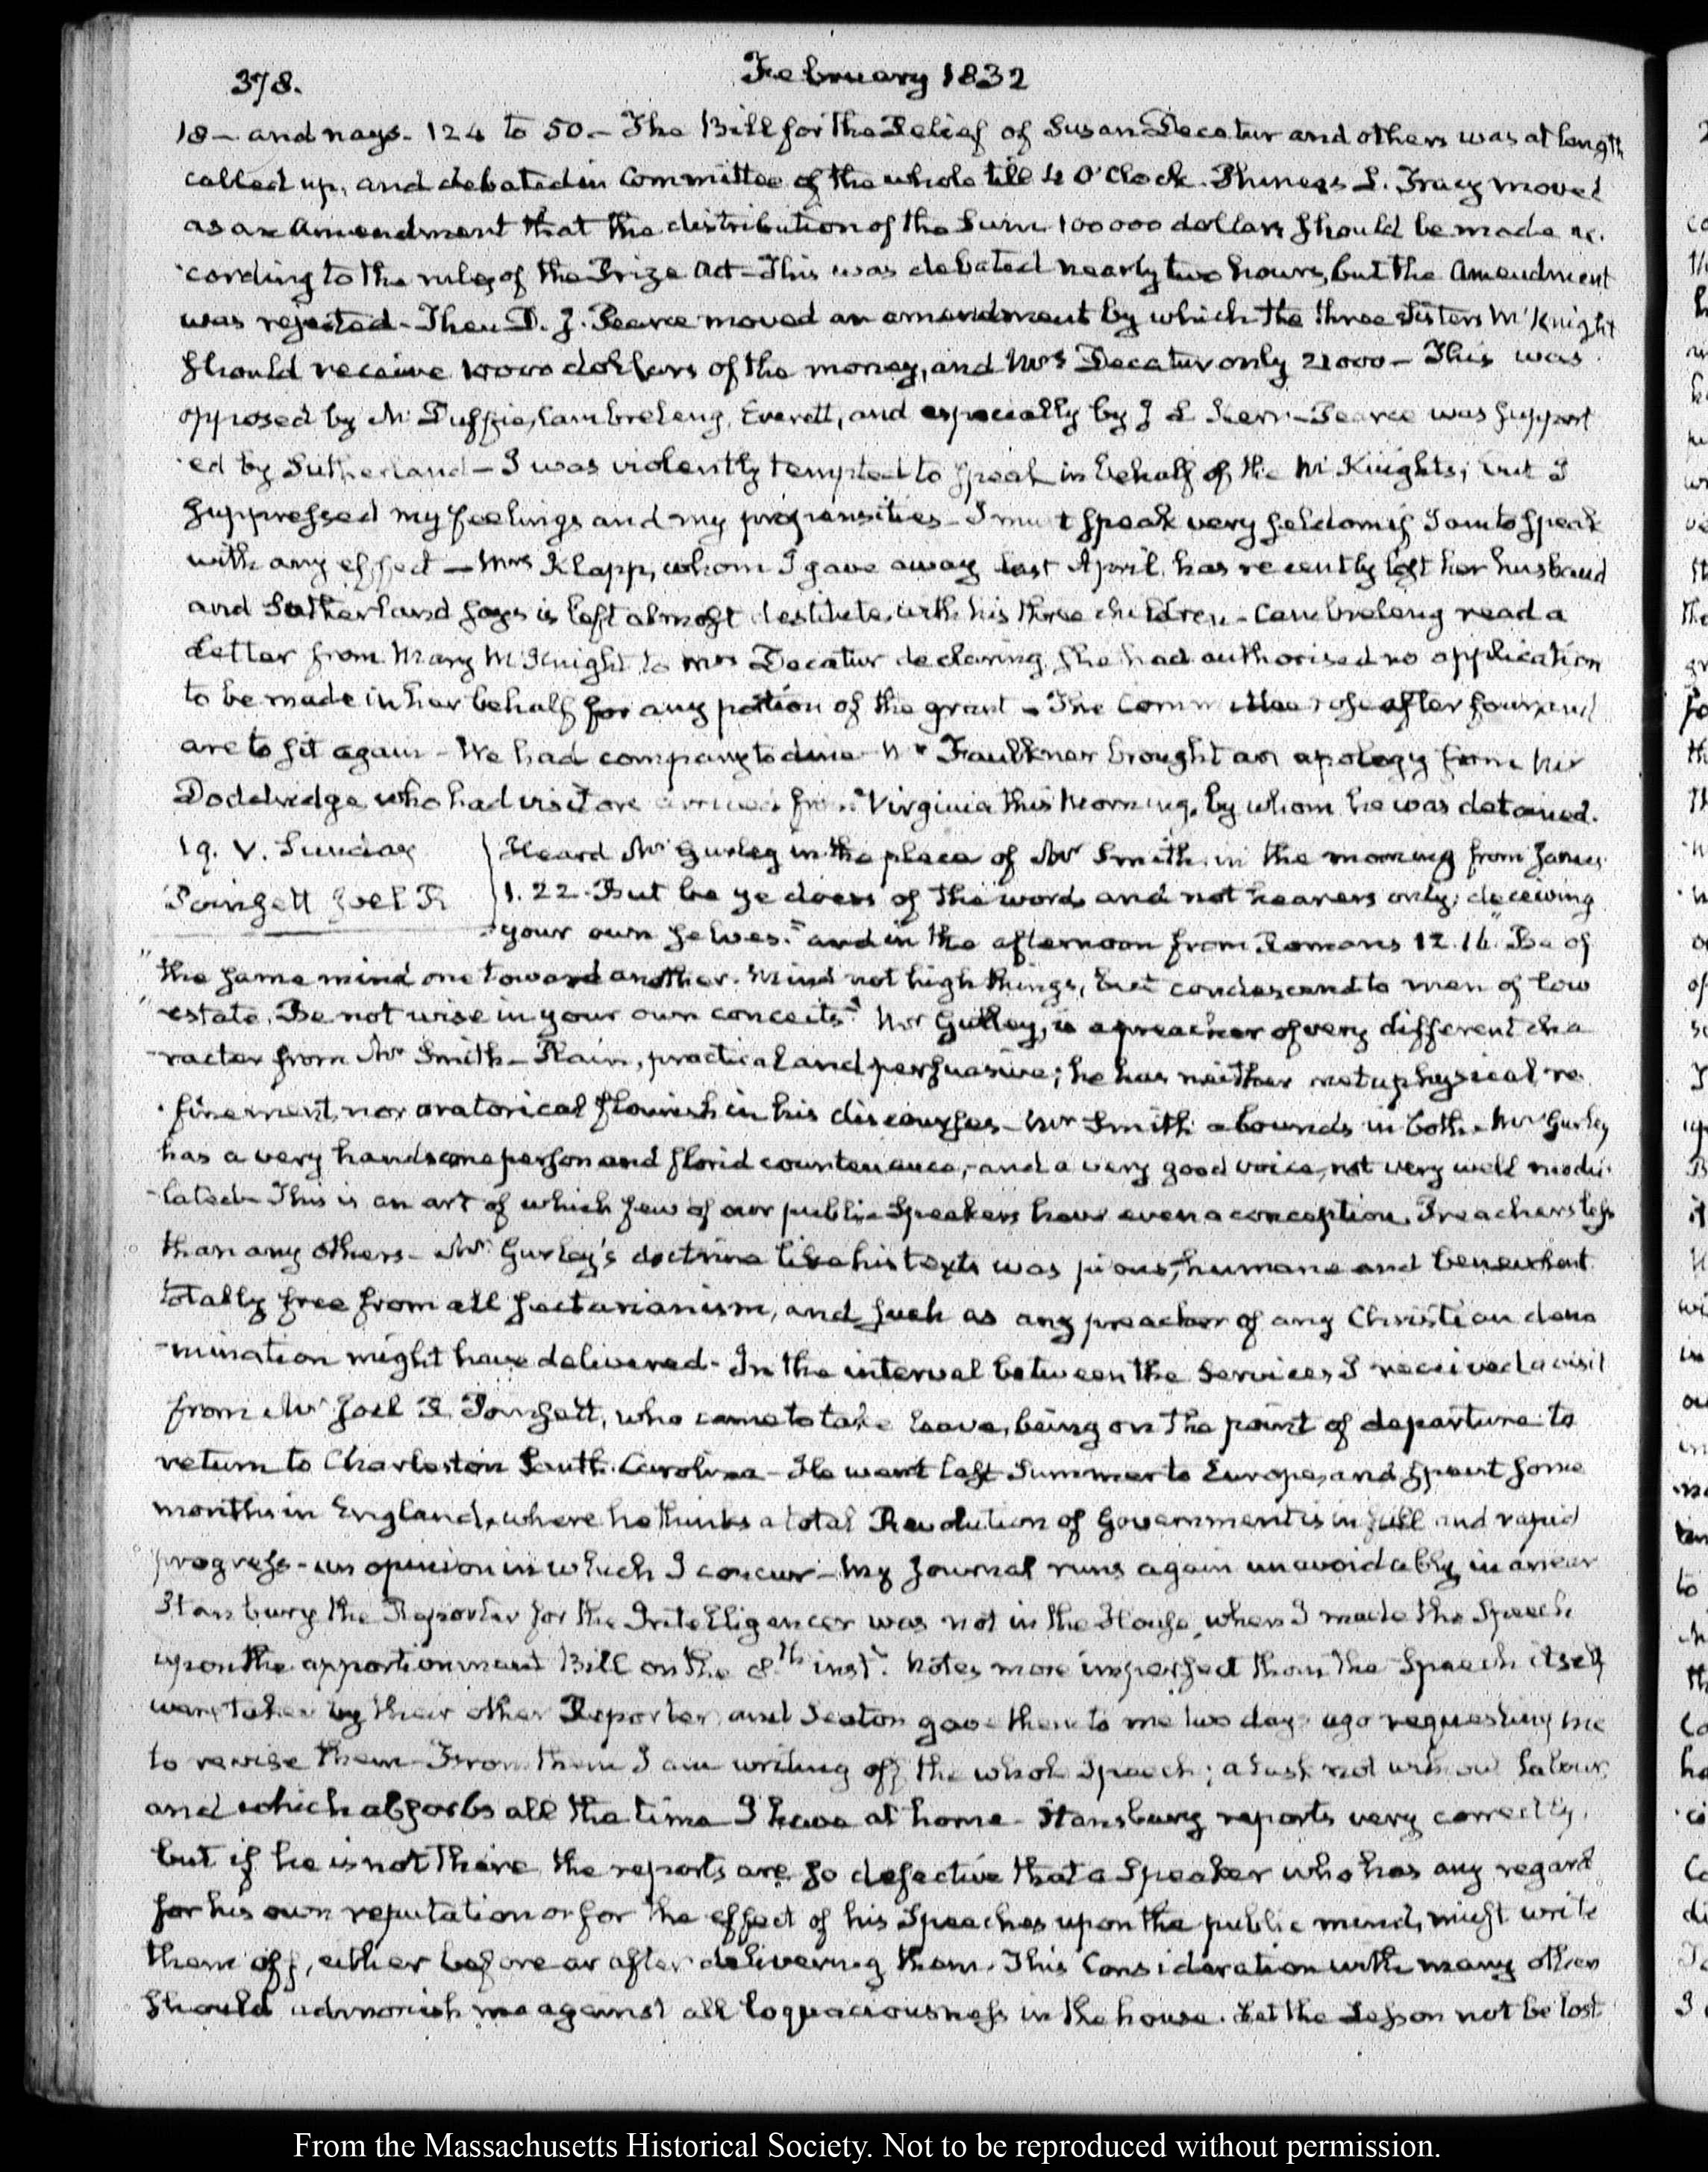 378.
February 1832
18 — and nays. 124 to 50.— The Bill for the Relief of Susan Decatur and others was at length
called up, and debated in Committee of the whole till 4 O'Clock. Phineas L. Tracy moved
as an Amendment that the distribution of the Sum 100000 dollars should be made ac.
cording to the rules of the Prize Act — This was debated nearly two hours, but the Amendment
was rejected — Then D. J. Pearce moved an amendment by which the three Sisters McKnight
should receive 10000 dollars of the money, and Mrs Decatur only 21000 — This was
opposed by McDuffie, Cambreleng, Everett, and especially by J L Kerr — Pearce was support
ed by Sutherland — I was violently tempted to speak in behalf of the McKnights; but I
suppressed my feelings and my propensities — I must speak very seldom if I am to speak
with any effect — Mrs Klapp, whom I gave away last April, has recently lost her husband
and Sutherland says is left almost destitute with his three children — Cambreleng read a
Letter from Mary McKnight to Mrs Decatur declaring she had authorised no application
to be made in her behalf for any portion of the grant — The Committee rose after four, and
are to sit again — We had company to dine — Mr Faulkner brought an apology from Mr
Doddridge, who had visitors arrived from Virginia this Morning, by whom he was detained.
19. V. Sunday
Poinsett Joel R
Heard Mr Gurley in the place of Mr Smith. in the morning from James
1. 22. But be ye doers of the word, and not hearers only; deceiving
your own selves." and in the afternoon from Romans 12. 16. "Be of
"the same mind one toward another. Mind not high things, but condescend to men of low
"estate. Be not wise in your own conceits." Mr Gurley, is a preacher of very different cha
racter from Mr Smith — Plain, practical and persuasive; he has neither metaphysical re
finement, nor oratorical flourish in his discourses — Mr Smith abounds in both. Mr Gurley
has a very handsome person and florid countenance, and a very good voice, not very well modu
lated — This is an art of which few of our public Speakers have even a conception. Preachers less
than any others — Mr Gurley's doctrine like his texts was pious, humane and benevolent
totally free from all sectarianism, and such as any preacher of any Christian deno
mination might have delivered — In the interval between the Services I received a visit
from Mr Joel R Poinsett, who came to take leave, being on the point of departure to
return to Charleston South Carolina — He went last Summer to Europe, and spent some
months in England, where he thinks a total Revolution of Government is in full and rapid
progress — an opinion in which I concur — My Journal runs again unavoidably in arrear
Stansbury the Reporter for the Intelligencer was not in the House, when I made the Speech
upon the apportionment Bill on the 8th inst. Notes more imperfect than the Speech itself
were taken by their other Reporter, and Seaton gave them to me two days ago requesting me
to revise them — From them I am writing off the whole Speech; a task not without labour,
and which absorbs all the time I have at home — Stansbury reports very correctly,
but if he is not there the reports are so defective that a Speaker who has any regard
for his own reputation or for the effect of his Speeches upon the public mind, must write
them off, either before or after delivering them. This Consideration with many others
should admonish me against all loquaciousness in the house. Let the Lesson not be lost
From the Massachusetts Historical Society. Not to be reproduced without permission.